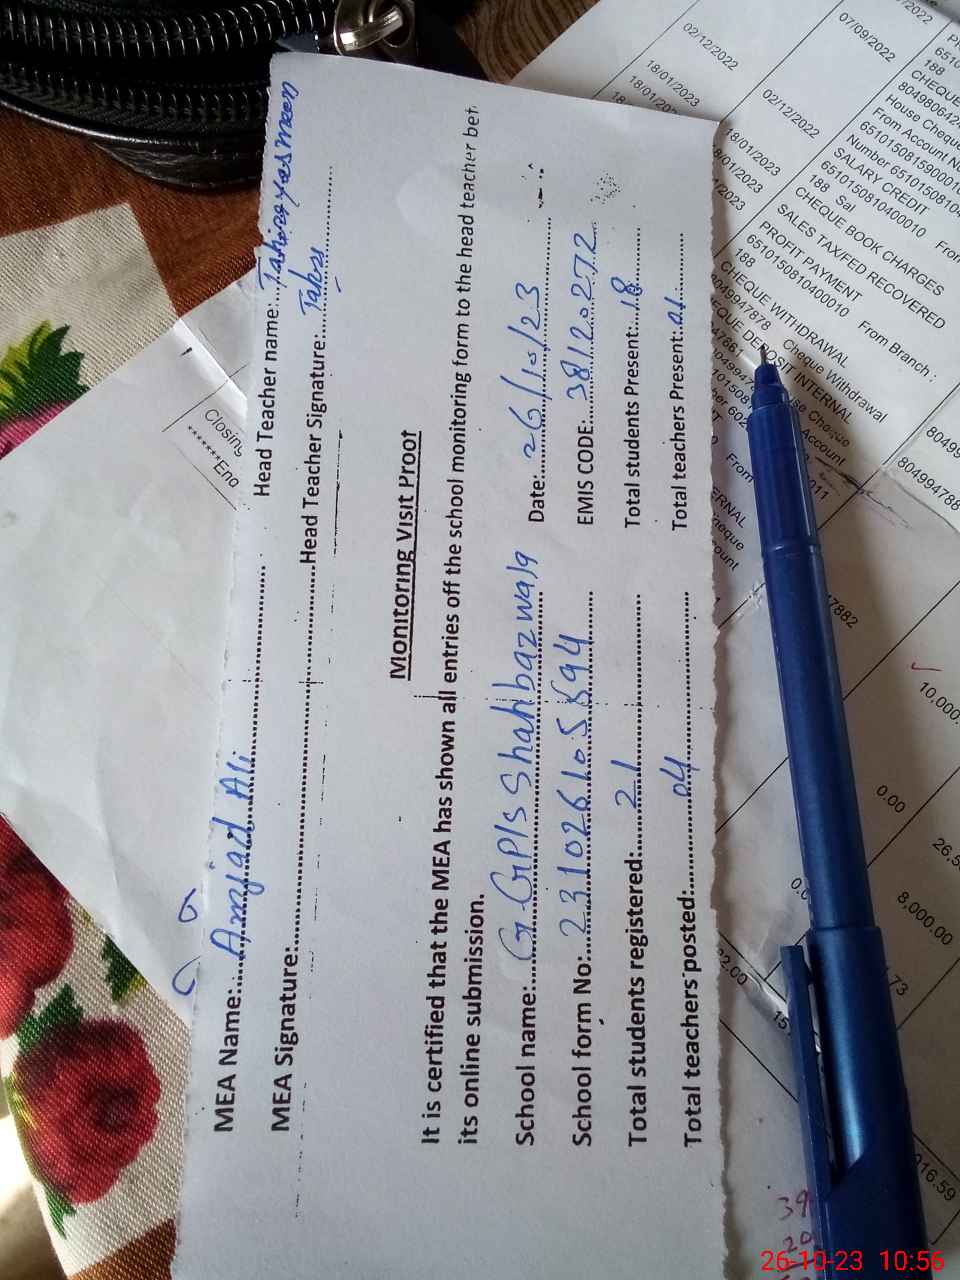 MEA Name:..Amjad Ali..............Head Teacher name:..Tahira yasmeen
MEA Signature:..............Head Teacher Signature:..............
Monitoring Visit Proof
It is certified that the MEA has shown all entries off the school monitoring form to the head teacher bef
its online submission.
School name:..GGP/S Shahbazwala Date:..26/10/23
School form No:.. EMIS CODE:..38120272
Total students registered:..21 Total students Present:..18
Total teachers posted:..04 Total teachers Present:..01
Closing
*******End
02/12/2022
07/09/2022
18/01/2023
02/12/2022
18/01/2023
188
CHEQUE
House Cheque
From Account
Number
SALARY CREDIT
6510150810400010 From
188 Sal
CHEQUE BOOK CHARGES
SALES TAX/FED RECOVERED
PROFIT PAYMENT
6510150810400010 From Branch :
188
CHEQUE WITHDRAWAL
8049947878 Cheque Withdrawal
CHEQUE DEPOSIT INTERNAL
Account
From
10,000.
0.00
8,000.00
26-10-23 10:56